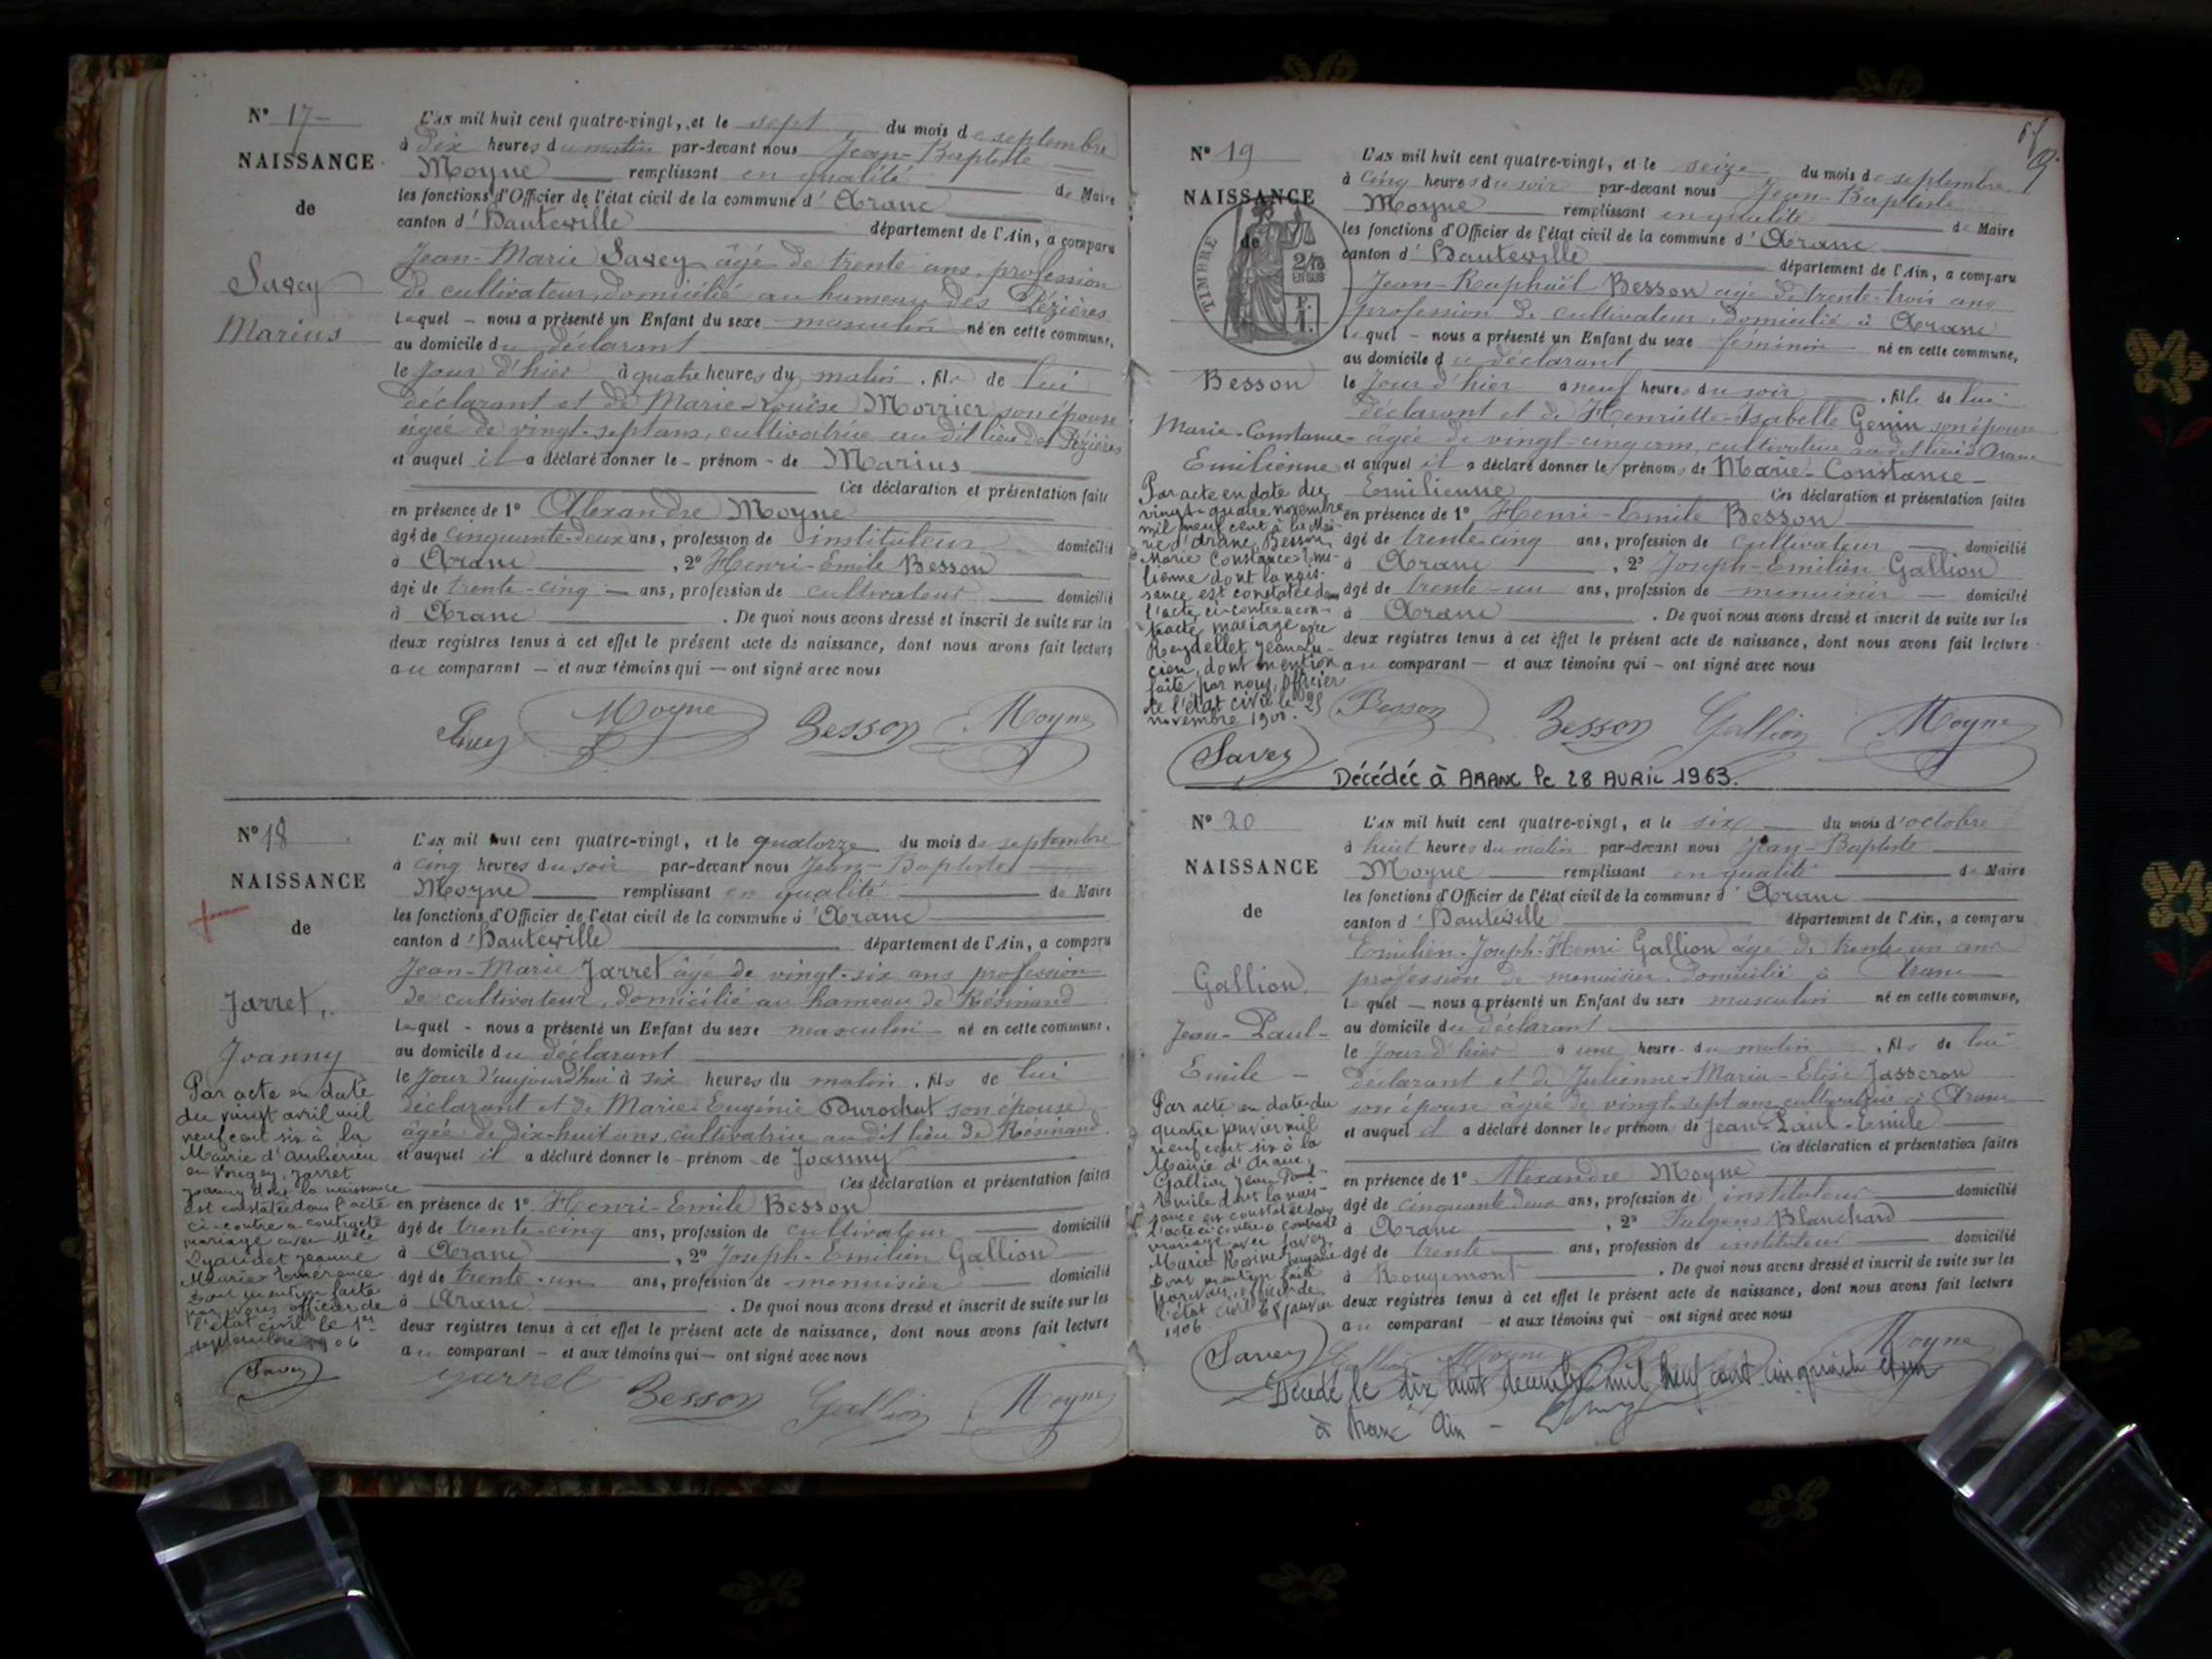 N° 17
NAISSANCE
de
Savey
Marius
L'AN mil huit cent quatre-vingt, et le sept du mois de septembre
à dix heures du matin par-devant nous Jean-Baptiste
Moyne remplissant en qualité de Maire
les fonctions d'Officier de l'état civil de la commune d'Aranc
canton d'Hauteville département de l'Ain, a comparu
Jean-Marie Savey âgé de trente ans, profession
de cultivateur, domicilié au hameau des Pézières
lequel nous a présenté un Enfant du sexe masculin né en cette commune,
au domicile du déclarant
le jour d'hier à quatre heures du matin, fils de lui
déclarant et de Marie-Louise Morrier son épouse
âgée de vingt-sept ans, cultivatrice au dit lieu des Pézières
et auquel il a déclaré donner le prénom de Marius
Ces déclaration et présentation faites
en présence de 1° Alexandre Moyne
âgé de cinquante-deux ans, profession de instituteur domicilié
à Aranc, 2° Henri-Emile Besson
âgé de trente-cinq ans, profession de cultivateur domicilié
à Aranc. De quoi nous avons dressé et inscrit de suite sur les
deux registres tenus à cet effet le présent acte de naissance, dont nous avons fait lecture
au comparant et aux témoins qui ont signé avec nous
Savey Moyne Besson Moyne
N° 18
NAISSANCE
de
Jarret,
Joanny
Par acte en date
du vingt avril mil
neuf cent six à la
Mairie d'Ambérieu
en Bugey, Jarret
Joanny dont la naissance
est constatée dans l'acte
ci-contre a contracté
mariage avec Melle
Jeanne
dont mention faite
par nous officier de
l'état civil le 1er
septembre 1906
Savey
L'AN mil huit cent quatre-vingt, et le quatorze du mois de septembre
à cinq heures du soir par-devant nous Jean-Baptiste
Moyne remplissant en qualité de Maire
les fonctions d'Officier de l'état civil de la commune d'Aranc
canton d'Hauteville département de l'Ain, a comparu
Jean-Marie Jarret âgé de vingt-six ans profession
de cultivateur, domicilié au hameau de Résinand
lequel - nous a présenté un Enfant du sexe masculin né en cette commune,
au domicile du déclarant
le jour d'aujourd'hui à six heures du matin, fils de lui
déclarant et de Marie Eugénie Durochat son épouse
âgée de dix-huit ans, cultivatrice au dit lieu de Résinand
et auquel il a déclaré donner le prénom de Joanny
Ces déclaration et présentation faites
en présence de 1° Henri-Emile Besson
âgé de trente-cinq ans, profession de cultivateur domicilié
à Aranc, 2° Joseph-Emilien Gallion
âgé de trente-un ans, profession de menuisier domicilié
à Aranc. De quoi nous avons dressé et inscrit de suite sur les
deux registres tenus à cet effet le présent acte de naissance, dont nous avons fait lecture
au comparant - et aux témoins qui - ont signé avec nous
Jarret Besson Gallion Moyne
N° 19
NAISSANCE
de
TIMBRE
Besson
Marie-Constance-
Emilienne
Par acte en date du
vingt-quatre novembre
mil neuf cent à la Mai-
rie d'Aranc, Besson
Marie Constance Emi-
lienne dont la nais-
sance est constatée dans
l'acte ci-contre a con-
tracté mariage avec
Reydellet Jean Lu-
cien, dont mention
faite par nous, Officier
de l'état civil le 25
novembre 1900.
Savey
L'AN mil huit cent quatre-vingt, et le seize du mois de septembre
à cinq heures du soir par-devant nous Jean-Baptiste
Moyne remplissant en qualité de Maire
les fonctions d'Officier de l'état civil de la commune d'Aranc
canton d'Hauteville département de l'Ain, a comparu
Jean-Raphaël Besson âgé de trente-trois ans
profession de cultivateur, domicilié à Aranc
lequel - nous a présenté un Enfant du sexe féminin né en cette commune,
au domicile du déclarant
le jour d'hier à neuf heures du soir, fille de lui
déclarant et de Henriette-Isabelle Genin son épouse
âgée de vingt-cinq ans, cultivatrice au dit lieu d'Aranc
et auquel il a déclaré donner les prénoms de Marie-Constance-
Emilienne Ces déclaration et présentation faites
en présence de 1° Henri-Emile Besson
âgé de trente-cinq ans, profession de cultivateur domicilié
à Aranc, 2° Joseph-Emilien Gallion
âgé de trente-un ans, profession de menuisier domicilié
à Aranc. De quoi nous avons dressé et inscrit de suite sur les
deux registres tenus à cet effet le présent acte de naissance, dont nous avons fait lecture
au comparant - et aux témoins qui - ont signé avec nous
Besson Besson Gallion Moyne
Décédée à ARANC le 28 AVRIL 1963.
N° 20
NAISSANCE
de
Gallion
Jean-Paul-
Emile
Par acte en date du
quatre janvier mil
neuf cent six à la
Mairie d'Aranc,
Gallion Jean Paul
Emile dont la nais-
sance est constatée dans
l'acte ci-contre a contracté
mariage avec Savey
Marie
dont mention faite
par nous, officier de
l'état civil le 8 janvier
1906.
Savey
L'AN mil huit cent quatre-vingt, et le six du mois d'octobre
à huit heures du matin par-devant nous Jean-Baptiste
Moyne remplissant en qualité de Maire
les fonctions d'Officier de l'état civil de la commune d'Aranc
canton d'Hauteville département de l'Ain, a comparu
Emilien-Joseph-Henri Gallion âgé de trente-un ans
profession de menuisier, domicilié à Aranc
lequel - nous a présenté un Enfant du sexe masculin né en cette commune,
au domicile du déclarant
le jour d'hier à une heure du matin, fils de lui
déclarant et de Julienne-Maria-Elise Jasseron
son épouse âgée de vingt-sept ans, cultivatrice à Aranc
et auquel il a déclaré donner les prénoms de Jean-Paul-Emile
Ces déclaration et présentation faites
en présence de 1° Alexandre Moyne
âgé de cinquante-deux ans, profession de instituteur domicilié
à Aranc, 2° Fulgens Blanchard
âgé de trente ans, profession de instituteur domicilié
à Rougemont. De quoi nous avons dressé et inscrit de suite sur les
deux registres tenus à cet effet le présent acte de naissance, dont nous avons fait lecture
au comparant et aux témoins qui - ont signé avec nous
Gallion Moyne Moyne
Décédé le dix huit décembre mil neuf cent cinquante et un
à Aranc Ain -